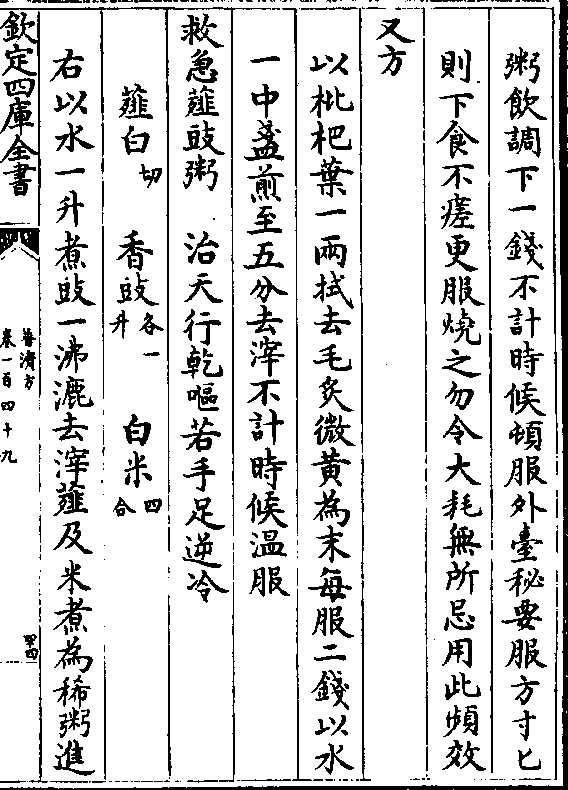 粥飲調下一錢不計時候頻服外臺秘要服方寸匕
則下食不瘥更服燒之勿令大耗無所忌用此頻效
又方
以枇杷葉一兩拭去毛炙微黄為末每服二錢以水
一中盞煎至五分去滓不計時候溫服
救急薤豉粥　治天行乾嘔若手足逆冷
薤白切　香豉各一升　白米四合
右以水一升煮豉一沸漉去滓薤及米煮為稀粥進
欽定四庫全書
普濟方
卷一百四十九
四